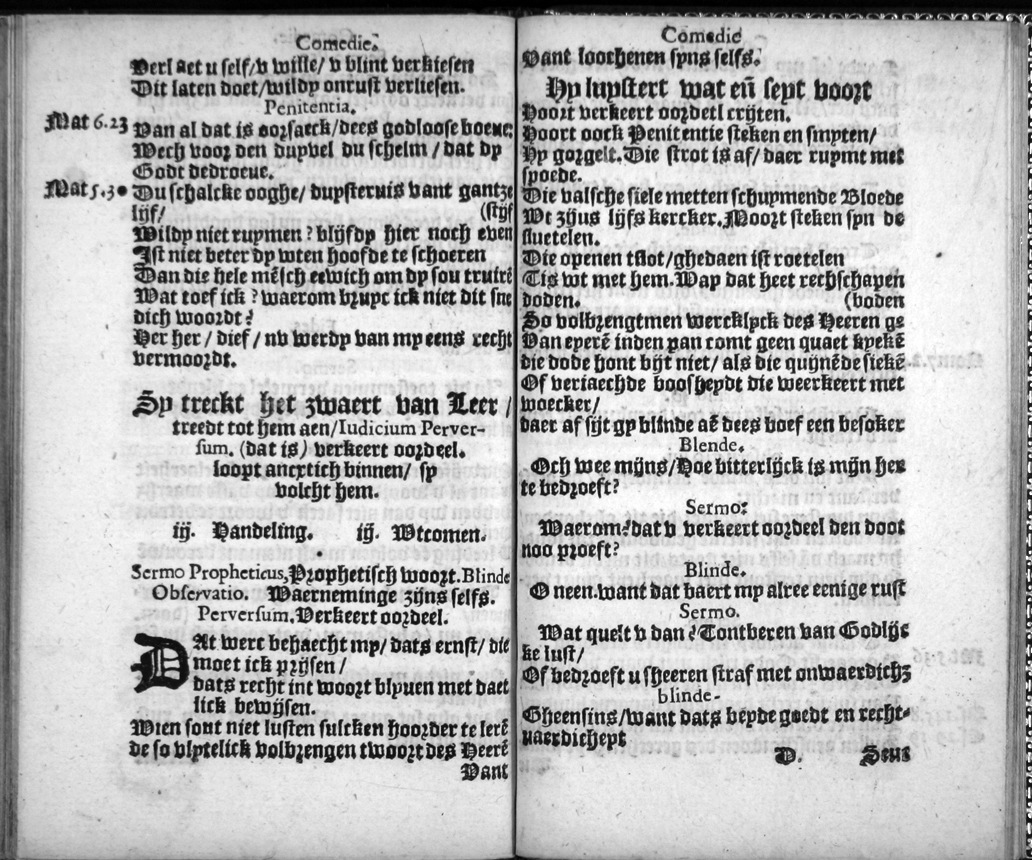 Comedie.
Verl aet u self/ v wille/ v blint verkiesen
Dit laten doet/ wildy onrust verliesen.
Penitentia.
Mat 6.23 Van al dat is oorsaeck/ dees godloose boeue:
Wech voor den duyvel du schelm / dat dy
Godt bedroeue.
Mat 5.3 Du schalcke ooghe/ duysternis vant gantze
lijf/ (stijf
Wildy niet ruymen? blijfdy hier noch even
Ist niet beter dy wten hoofde te schoeren
Dan die hele mēsch eewich om dy sou truirē
Wat toef ick? waerom bruyc ick niet dit sne
dich woordt?
Her her / dief / nv werdy van my eens recht
vermoordt.
Sy treckt het zwaert van Leer /
treedt tot hem aen/ Iudicium Perver-
sum. (dat is) verkeert oordeel.
loopt ancxtich binnen/ sy
volcht hem.
iij. Handeling. ij. Wtcomen.
Sermo Propheticus, Prophetisch woort. Blinde
Observatio. Waerneminge zijns selfs.
Perversum. Verkeert oordeel.
DAt werc behaecht my/ dats ernst/ die
moet ick prijsen/
dats recht int woort blyuen met daet
lick bewijsen.
Wien sout niet lusten sulcken hoorder te lerē
de so vlytelick volbrengen twoort des Heerē
Vant
Comedie
Vant loochenen syns selfs.
Hy luystert wat eñ seyt voort
Hoort verkeert oordeel crijten.
Hoort oock Penitentie steken en smyten/
Hy gorgelt. Die strot is af/ daer ruymt met
spoede.
Die valsche siele metten schuymende Bloede
Wt zijns lijfs kercker. Moort steken syn de
sluetelen.
Die openen tslot/ ghedaen ist roetelen
Tis wt met hem. Way dat heet rechschapen
doden. (boden
So volbrengtmen wercklyck des Heeren ge
Van eyerē inden pan comt geen quaet kyekē
die dode hont bijt niet/ als die quijnēde siekē
Of veriaechde boosheydt die weerkeert met
woecker/
daer af sijt gy blinde aē dees boef een besoker
Blende.
Och wee mijns/ Hoe bitterlijck is mijn her
te bedroeft?
Sermo:
Waerom? dat v verkeert oordeel den doot
noo proeft?
Blinde.
O neen. want dat baert my alree eenige rust
Sermo.
Wat quelt v dan? Tontberen van Godlijs
ke lust/
Of bedroeft u sheeren straf met onwaerdich?
blinde-
Gheensins/ want dats beyde goedt en recht-
uaerdicheyt
D. Seus